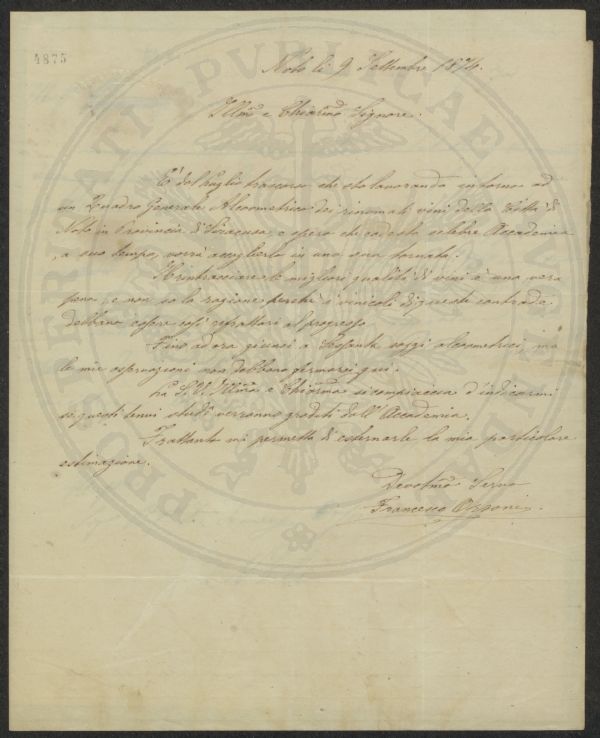 4875
Noto li 9 Settembre 1874.
Illmo e Chiarmo Signore.
E' dal luglio trascorso che sto lavorando intorno ad
un Quadro Generale Alcoometrico dei rinomati vini della Città di
Noto in Provincia di Siracusa, e spero che codesta celebre Accademia
, a suo tempo, vorrà accoglierlo in una sua tornata.
Il rintracciare le migliori qualità di vini è una vera
pena, e non so la ragione perchè i vinicoli di queste contrade
debbano essere così refrattari al progresso.
Fino ad ora giunsi a sessanta saggi alcoometrici, ma
le mie osservazioni non debbono fermarsi qui.
La S. V. Illma e Chiarma si compiaccia d'indicarmi
se questi tenui studi verranno graditi dall'Accademia.
Frattanto mi permetta di esternarle la mia particolare
estimazione.
Devotmo Servo
Francesco
PROSPERITATI PVBLICAE